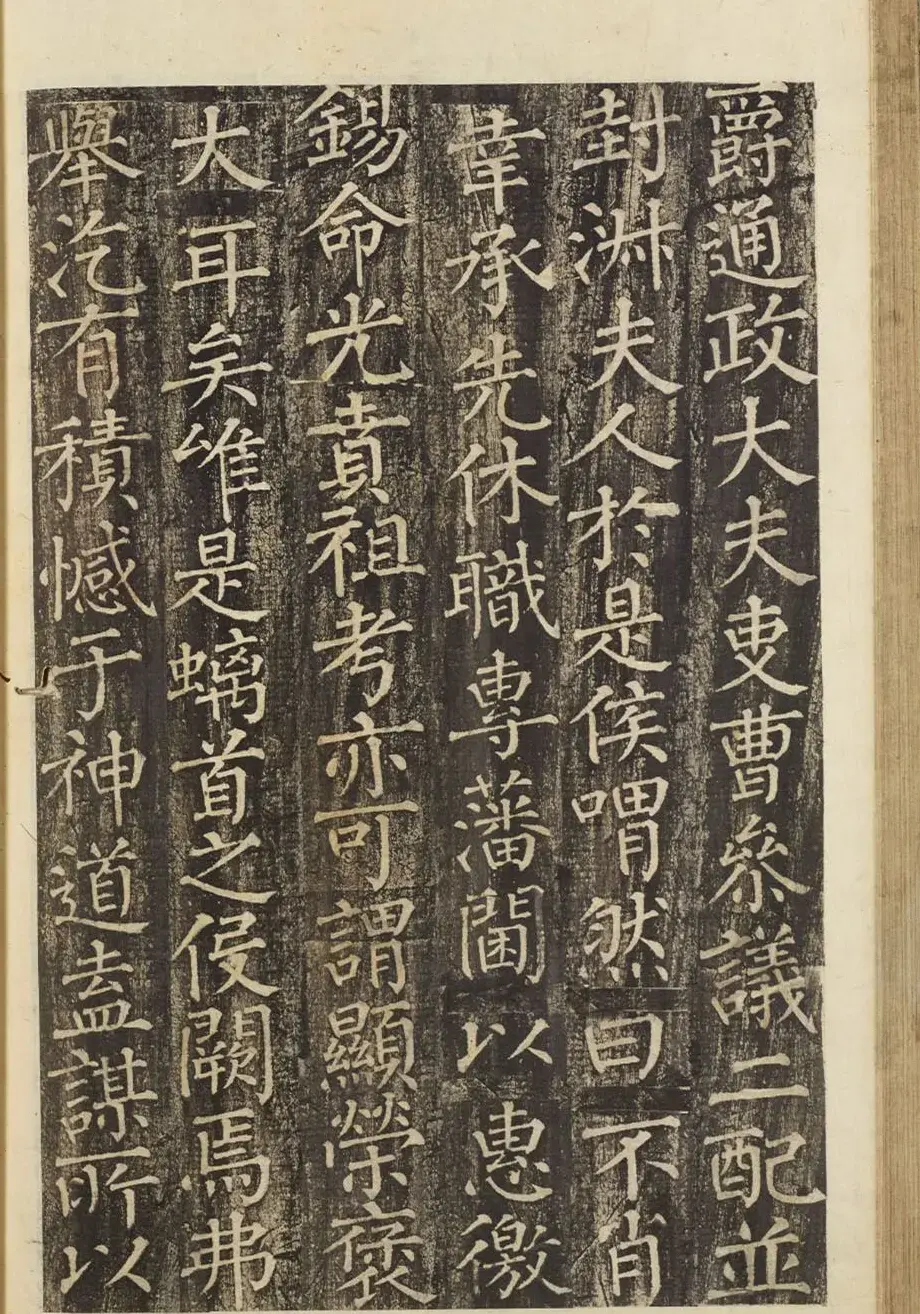 爵通政大夫吏曹叅議二配並
封淑夫人於是侯喟然曰不肖
幸承先休職專藩閫以惠徼
錫命光賁祖考亦可謂顯榮褒
大耳矣唯是螭首之侵闕焉弗
擧汔有積憾于神道盍謀所以